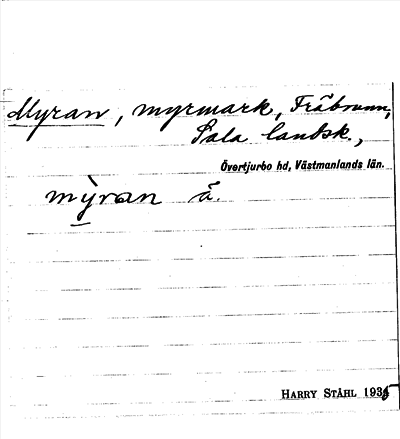 Myran, myrmark, Fräbrunn,
Sala landsk.,
Övertjurbo hd, Västmanlands län.
mỳran å.
HARRY STÅHL 1935